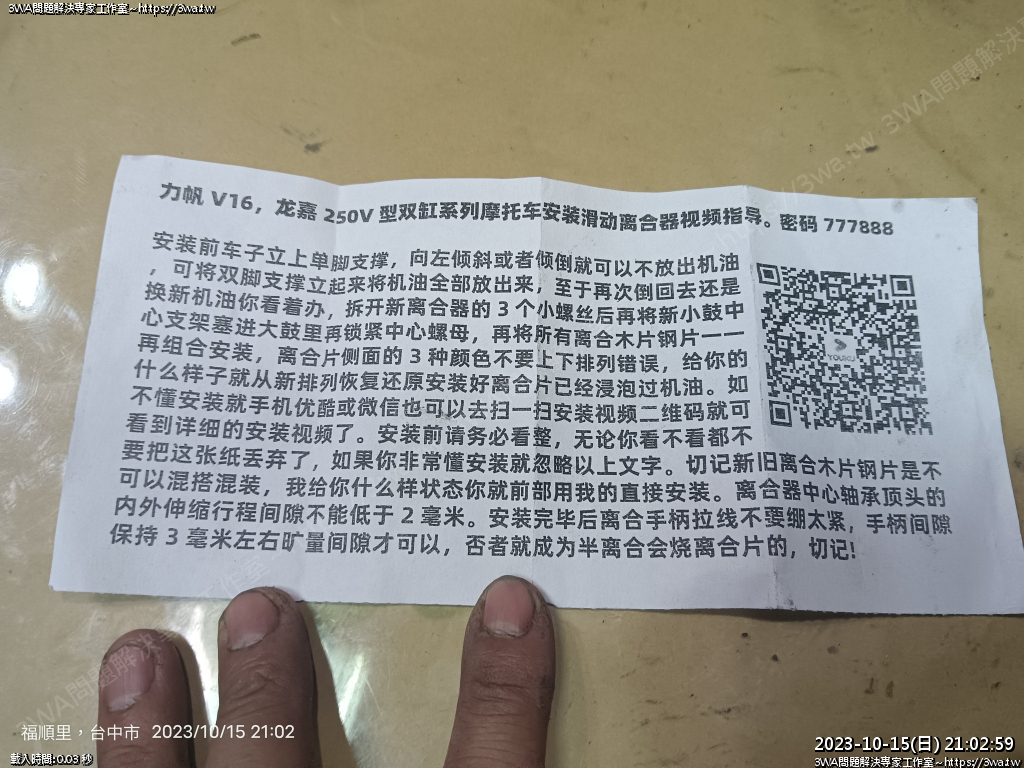 3WA問題解決專家工作室~https://3wa.tw
力帆 V16，龙嘉 250V 型双缸系列摩托车安装滑动离合器视频指导。密码 777888
安装前车子立上单脚支撑，向左倾斜或者倾倒就可以不放出机油
，可将双脚支撑立起来将机油全部放出来，至于再次倒回去还是
换新机油你看着办，拆开新离合器的 3 个小螺丝后再将新小鼓中
心支架塞进大鼓里再锁紧中心螺母，再将所有离合木片钢片一一
再组合安装，离合片侧面的 3 种颜色不要上下排列错误，给你的
什么样子就从新排列恢复还原安装好离合片已经浸泡过机油。如
不懂安装就手机优酷或微信也可以去扫一扫安装视频二维码就可
看到详细的安装视频了。安装前请务必看整，无论你看不看都不
要把这张纸丢弃了，如果你非常懂安装就忽略以上文字。切记新旧离合木片钢片是不
可以混搭混装，我给你什么样状态你就前部用我的直接安装。离合器中心轴承顶头的
内外伸缩行程间隙不能低于 2 毫米。安装完毕后离合手柄拉线不要绷太紧，手柄间隙
保持 3 毫米左右旷量间隙才可以，否者就成为半离合会烧离合片的，切记!
YOUKU
福順里，台中市 2023/10/15 21:02
載入時間:0.03 秒
2023-10-15(日) 21:02:59
3WA問題解決專家工作室~https://3wa.tw